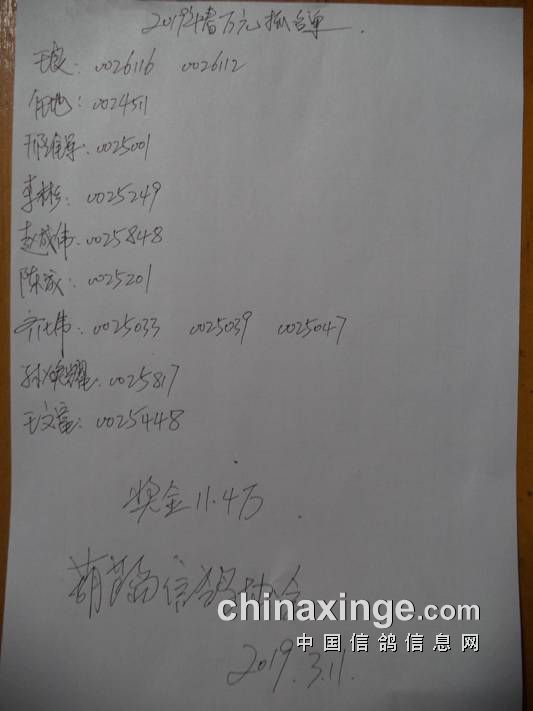 2019年春万元抓鸽单
王良: 0026116 0026112
任地: 0024511
0025001
李彬: 0025249
赵成伟: 0025848
陈成: 0025201
齐大伟: 0025033 0025039 0025047
孙焕耀: 0025817
王文富: 0025448
奖金11.4万
葫芦岛信鸽协会
chinaxinge.com
中国信鸽信息网
2019.3.11.